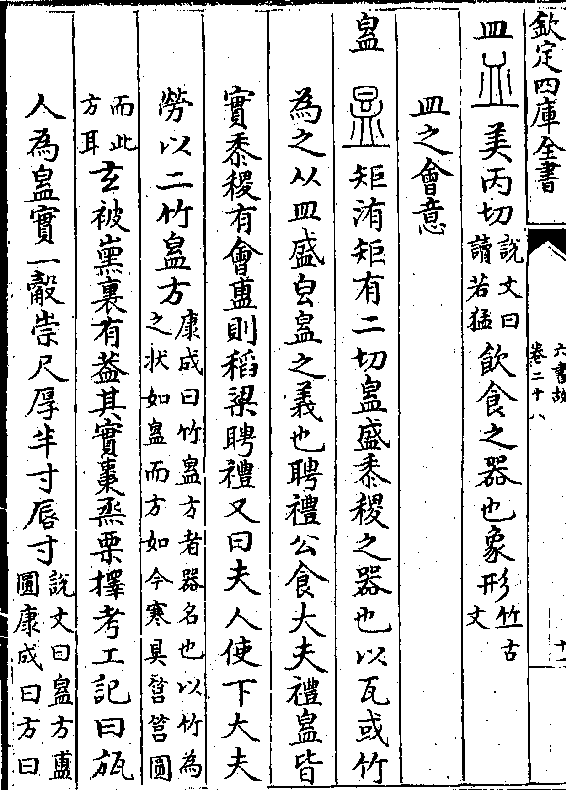 欽定四庫全書
六書故
卷二十八
皿 美丙切 說文曰讀若猛 飲食之器也象形 竹古文
皿之會意
矩洧矩有二切 盛黍稷之器也以瓦或竹
為之从皿盛皀 之義也聘禮公食大夫禮 皆
實黍稷有會 則稻粱聘禮又曰夫人使下大夫
勞以二竹 方 康成曰竹 方者器名也以竹為之狀如 而方如今寒具筥筥圓
而此方耳 玄被纁裏有蓋其實棗烝栗擇考工記曰瓬
人為 實一觳崇尺厚半寸唇寸 說文曰 方 圓康成曰方曰